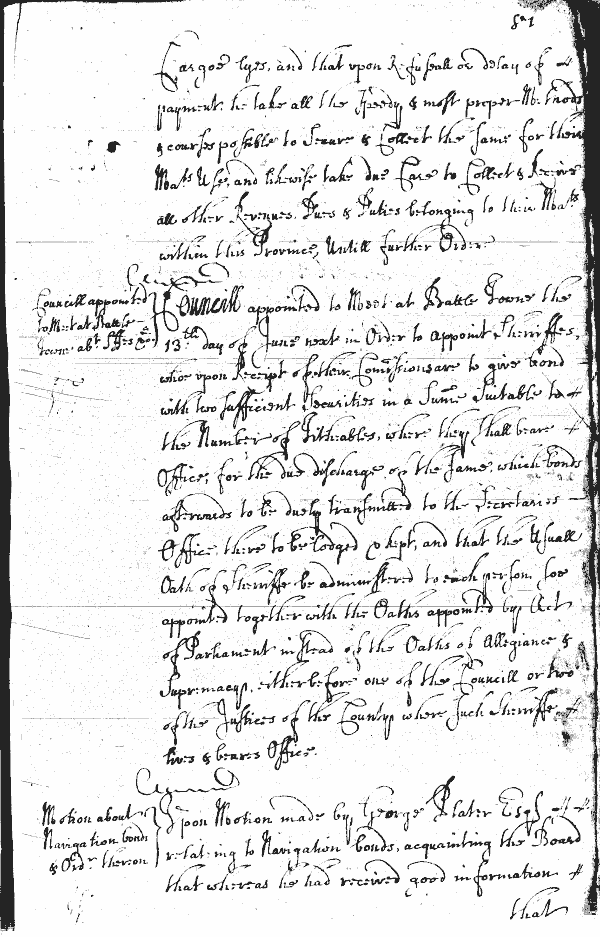 Cargoe lyes, and that upon Refusall or delay of
payment he take all the speedy & most proper Methods
& courses possible to Secure & Collect the same for their
Ma.ts Use, and likewise take due Care to Collect & Receive
all other Revenues Dues & Duties belonging to their Ma.ts
within this Province, Untill further Order.
Councill appointed
to Meet at Battle
Towne ab.t Sffes &c
Councill appointed to Meet at Battle Towne the
13.th day of June next in Order to appoint Sherriffes,
who upon Receipt of their Comissions are to give bond
with two sufficient Securities in a Sume Suitable to
the Number of Titheables, where they shall beare
Office, for the due discharge of the same, which bonds
afterwards to be duely transmitted to the Secretaries
Office, there to be lodged & kept, and that the Usuall
Oath of Sherriffe be administered to each person soe
appointed together with the Oaths appointed by Act
of Parliament instead of the Oaths of Allegiance &
Supremacy, either before one of the Councill or two
of the Justices of the County where such Sherriffe
lives & beares Office.
Motion about
Navigation bonds
& Ord.r thereon
Upon Motion made by George Plater Esq.r
relating to Navigation bonds, acquainting the Board
that whereas he had received good information
that